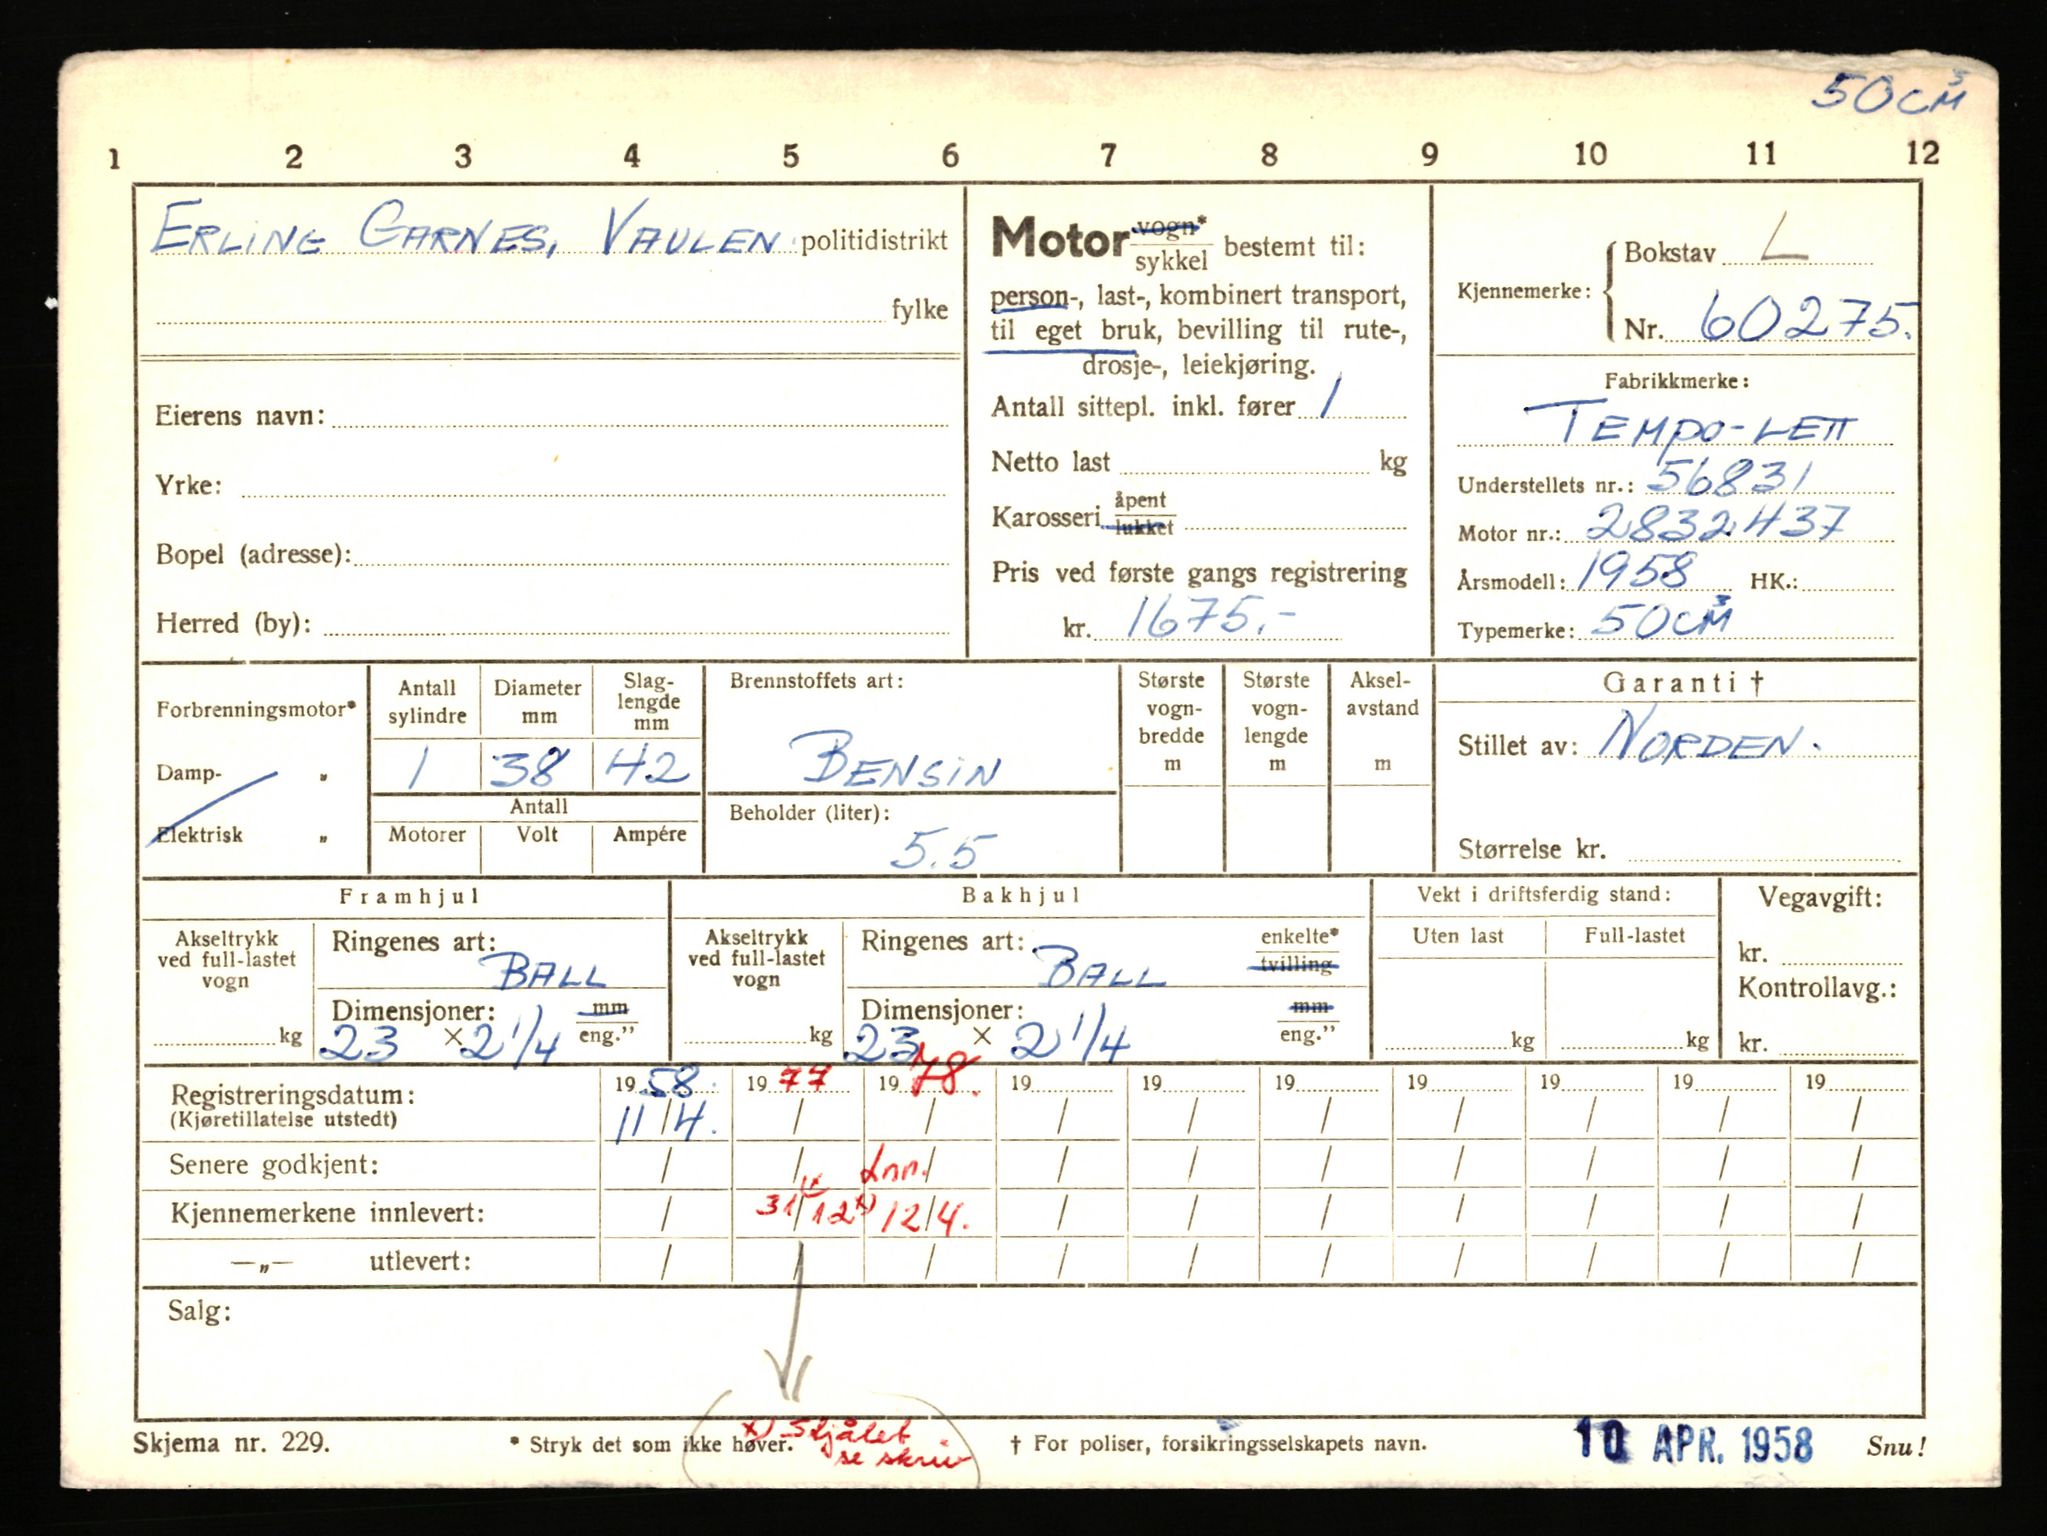 50 CM³
1 2 3 4 5 6 7 8 9 10 11 12
ERLING GARNES, VAULEN politidistrikt
fylke
Eierens navn:
Yrke:
Bopel (adresse):
Herred (by):
Motor vogn* sykkel bestemt til:
person-, last-, kombinert transport,
til eget bruk, bevilling til rute-,
drosje-, leiekjøring.
Antall sittepl. inkl. fører 1
Netto last kg
Karosseri åpent lukket
Pris ved første gangs registrering
kr. 1675.-
Kjennemerke: Bokstav L
Nr. 60275.
Fabrikkmerke:
TEMPO-LETT
Understellets nr.: 56831
Motor nr.: 2832437
Årsmodell: 1958 HK.:
Typemerke: 50 CM³
Forbrenningsmotor*
Damp- „
Elektrisk „
Antall sylindre Diameter mm Slag-lengde mm
1 38 42
Antall
Motorer Volt Ampére
Brennstoffets art:
BENSIN
Beholder (liter):
5.5
Største vogn-bredde m
Største vogn-lengde m
Aksel-avstand m
Garanti †
Stillet av: NORDEN.
Størrelse kr.
Framhjul
Akseltrykk ved full-lastet vogn
kg
Ringenes art:
BALL
Dimensjoner: mm
23 x 2 1/4 eng.”
Bakhjul
Akseltrykk ved full-lastet vogn
kg
Ringenes art: enkelte* tvilling
BALL
Dimensjoner: mm
23 x 2 1/4 eng.”
Vekt i driftsferdig stand:
Uten last Full-lastet
kg kg
Vegavgift:
kr.
Kontrollavg.:
kr.
Registreringsdatum: 19 58. 19 77 19 78. 19 19 19 19 19 19 19
(Kjøretillatelse utstedt) 11/4. / / / / / / / / /
Senere godkjent: / / Inn. / / / / / / / /
Kjennemerkene innlevert: / 31/12 x) 12/4. / / / / / / /
—„— utlevert: / / / / / / / / / /
Salg:
x) Stjålet
se skriv
Skjema nr. 229. * Stryk det som ikke høver. † For poliser, forsikringsselskapets navn. 10 APR. 1958 Snu!